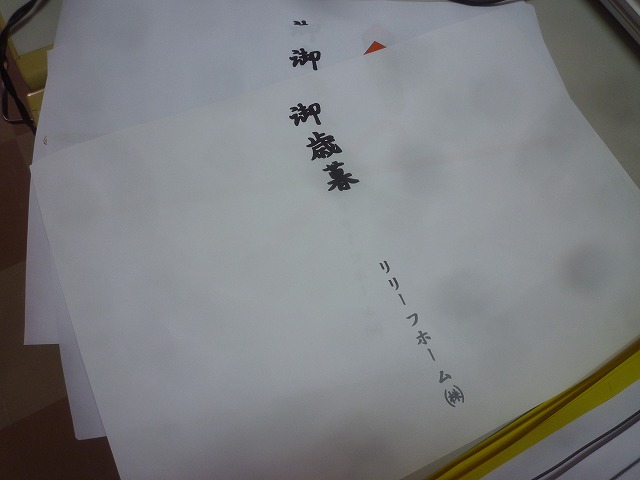 御
御歳暮
リリーフホーム㈱